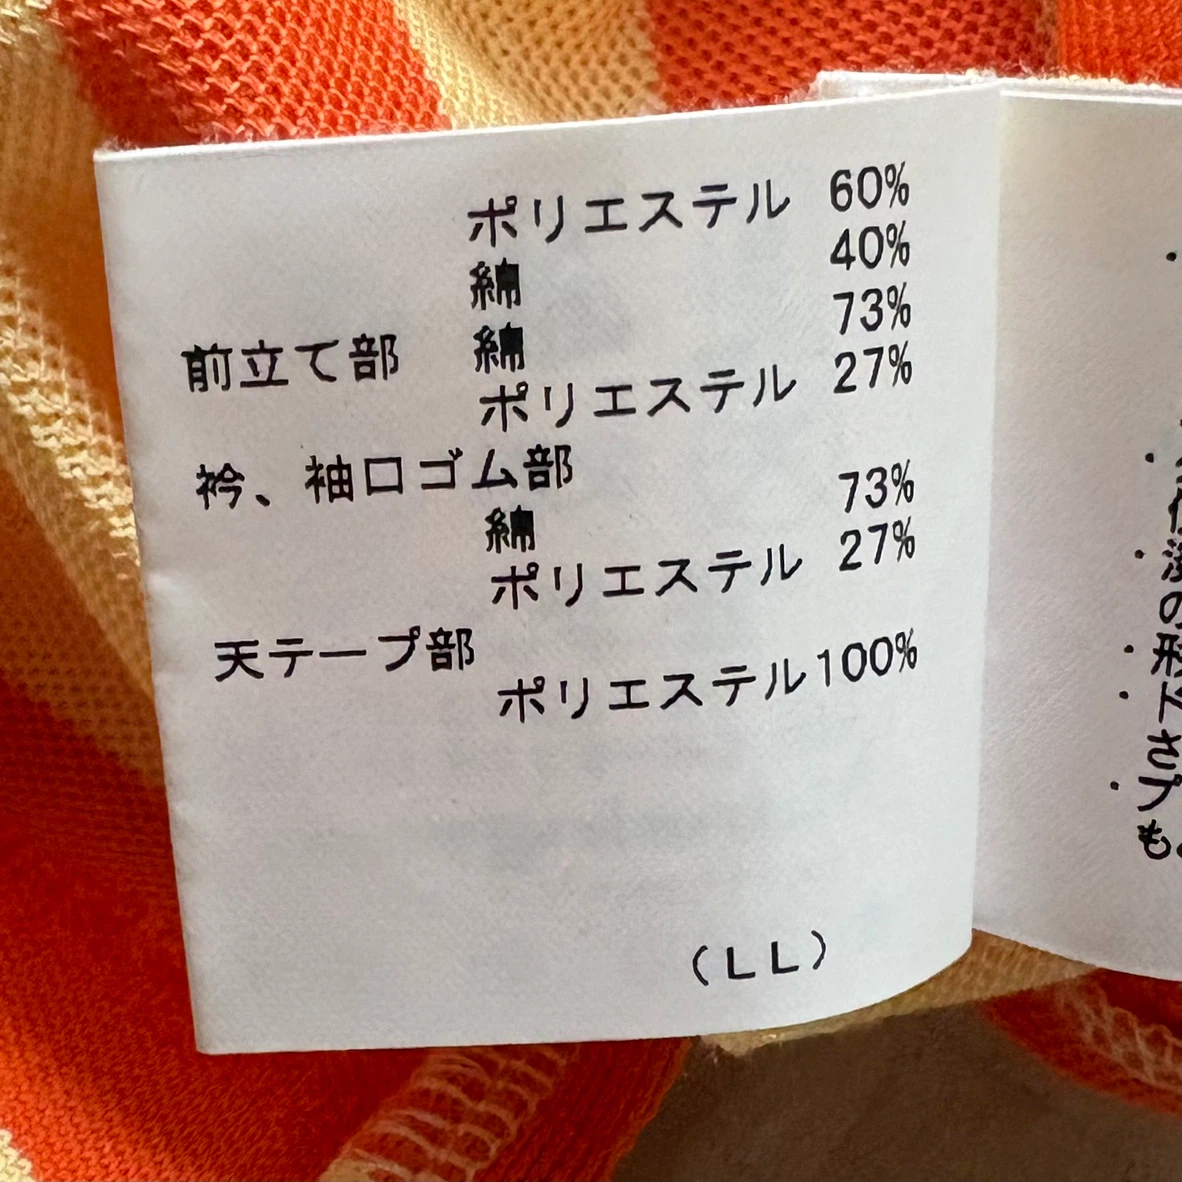 ポリエステル 60%
綿 40%
前立て部 綿 73%
ポリエステル 27%
衿、袖口ゴム部
綿 73%
ポリエステル 27%
天テープ部
ポリエステル100%
(LL)
の
形
さ
・プ
も